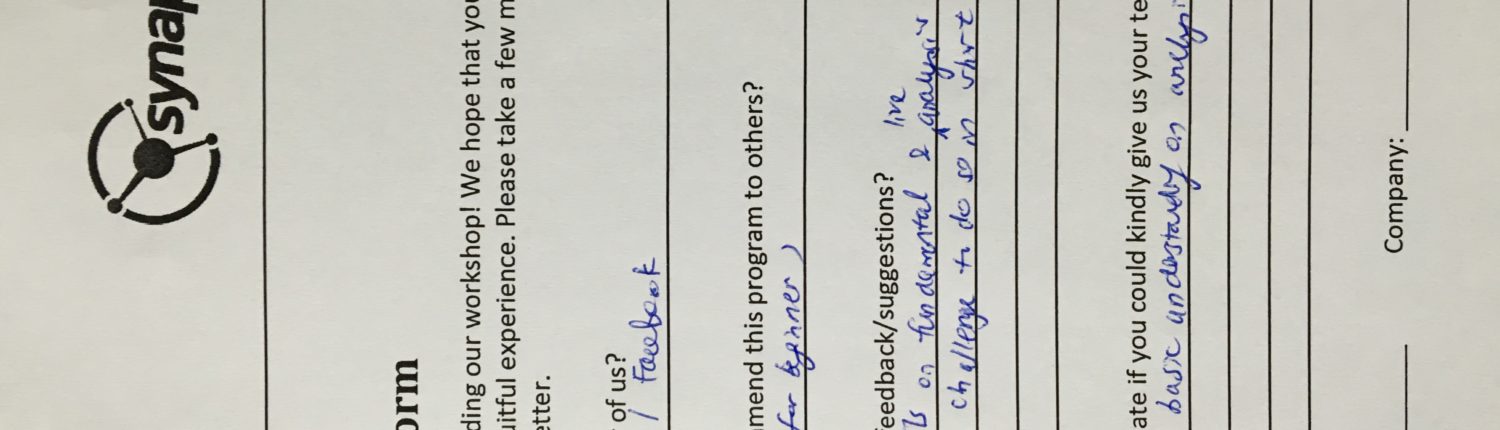 synap
orm
ding our workshop! We hope that you
uitful experience. Please take a few m
etter.
of us?
/ Facebook
mend this program to others?
for beginner)
feedback/suggestions?
ls on fundemental & live analysis
challenge to do so in short
ate if you could kindly give us your te
basic understandy on analysi
Company: